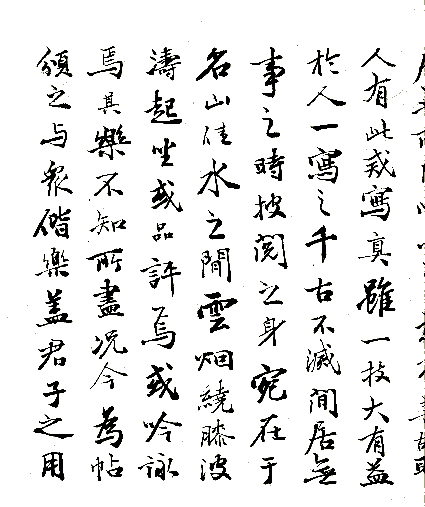 人有此寫真雖一技大有益
於人一寫之千古不滅間居無
事之時披閱之身宛在于
名山佳水之間雲烟繞膝波
濤起坐或品評焉或吟詠
焉其樂不知所盡況今為帖
頒之与衆偕樂蓋君子之用